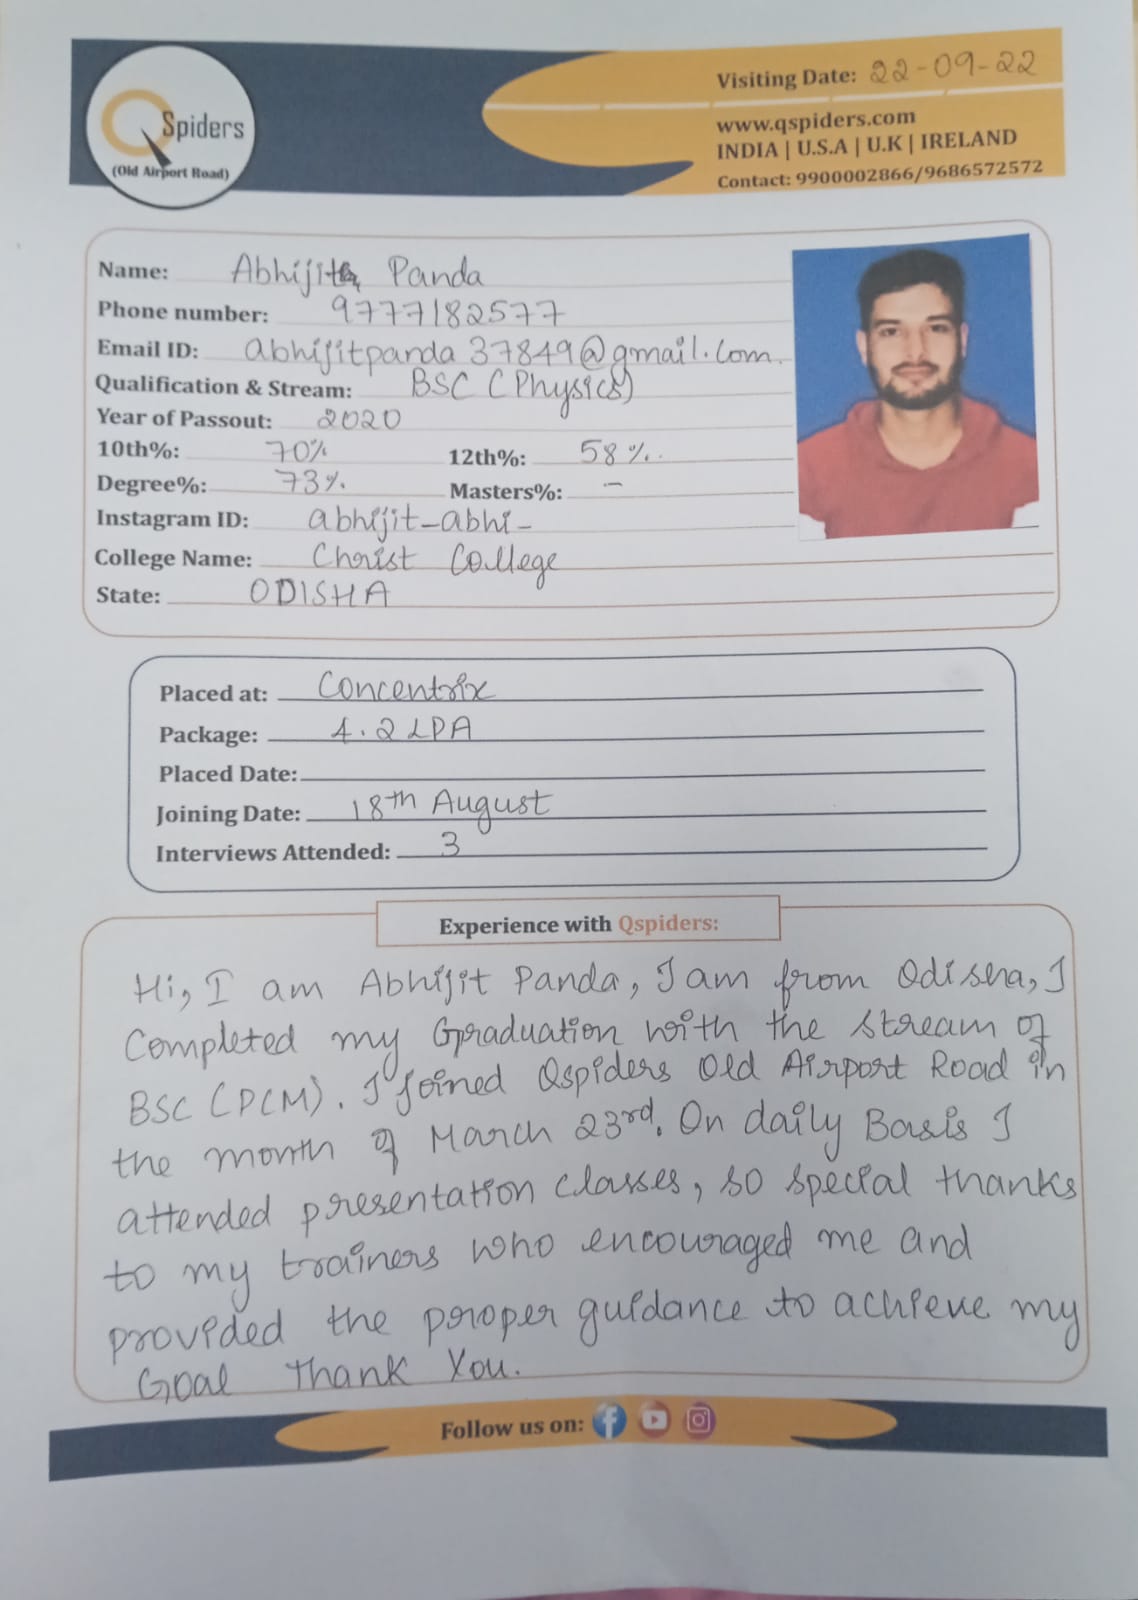 QSpiders
(Old Airport Road)
Visiting Date: 22-09-22
www.qspiders.com
INDIA | U.S.A | U.K | IRELAND
Contact: 9900002866/9686572572
Name: Abhijit Panda
Phone number: 9777182577
Email ID: abhijitpanda37849@gmail.com.
Qualification & Stream: BSC (Physics)
Year of Passout: 2020
10th%: 70% 12th%: 58%.
Degree%: 73%. Masters%: –
Instagram ID: abhijit_abhi_
College Name: Christ College
State: ODISHA
Placed at: Concentrix
Package: 4.2 LPA
Placed Date:
Joining Date: 18th August
Interviews Attended: 3
Experience with Qspiders:
Hi, I am Abhijit Panda, I am from Odisha, I
Completed my Graduation with the stream of
BSC (PCM). I joined Qspiders Old Airport Road in
the month of March 23rd. On daily Basis I
attended presentation classes, so special thanks
to my trainers who encouraged me and
provided the proper guidance to achieve my
Goal Thank You.
Follow us on: